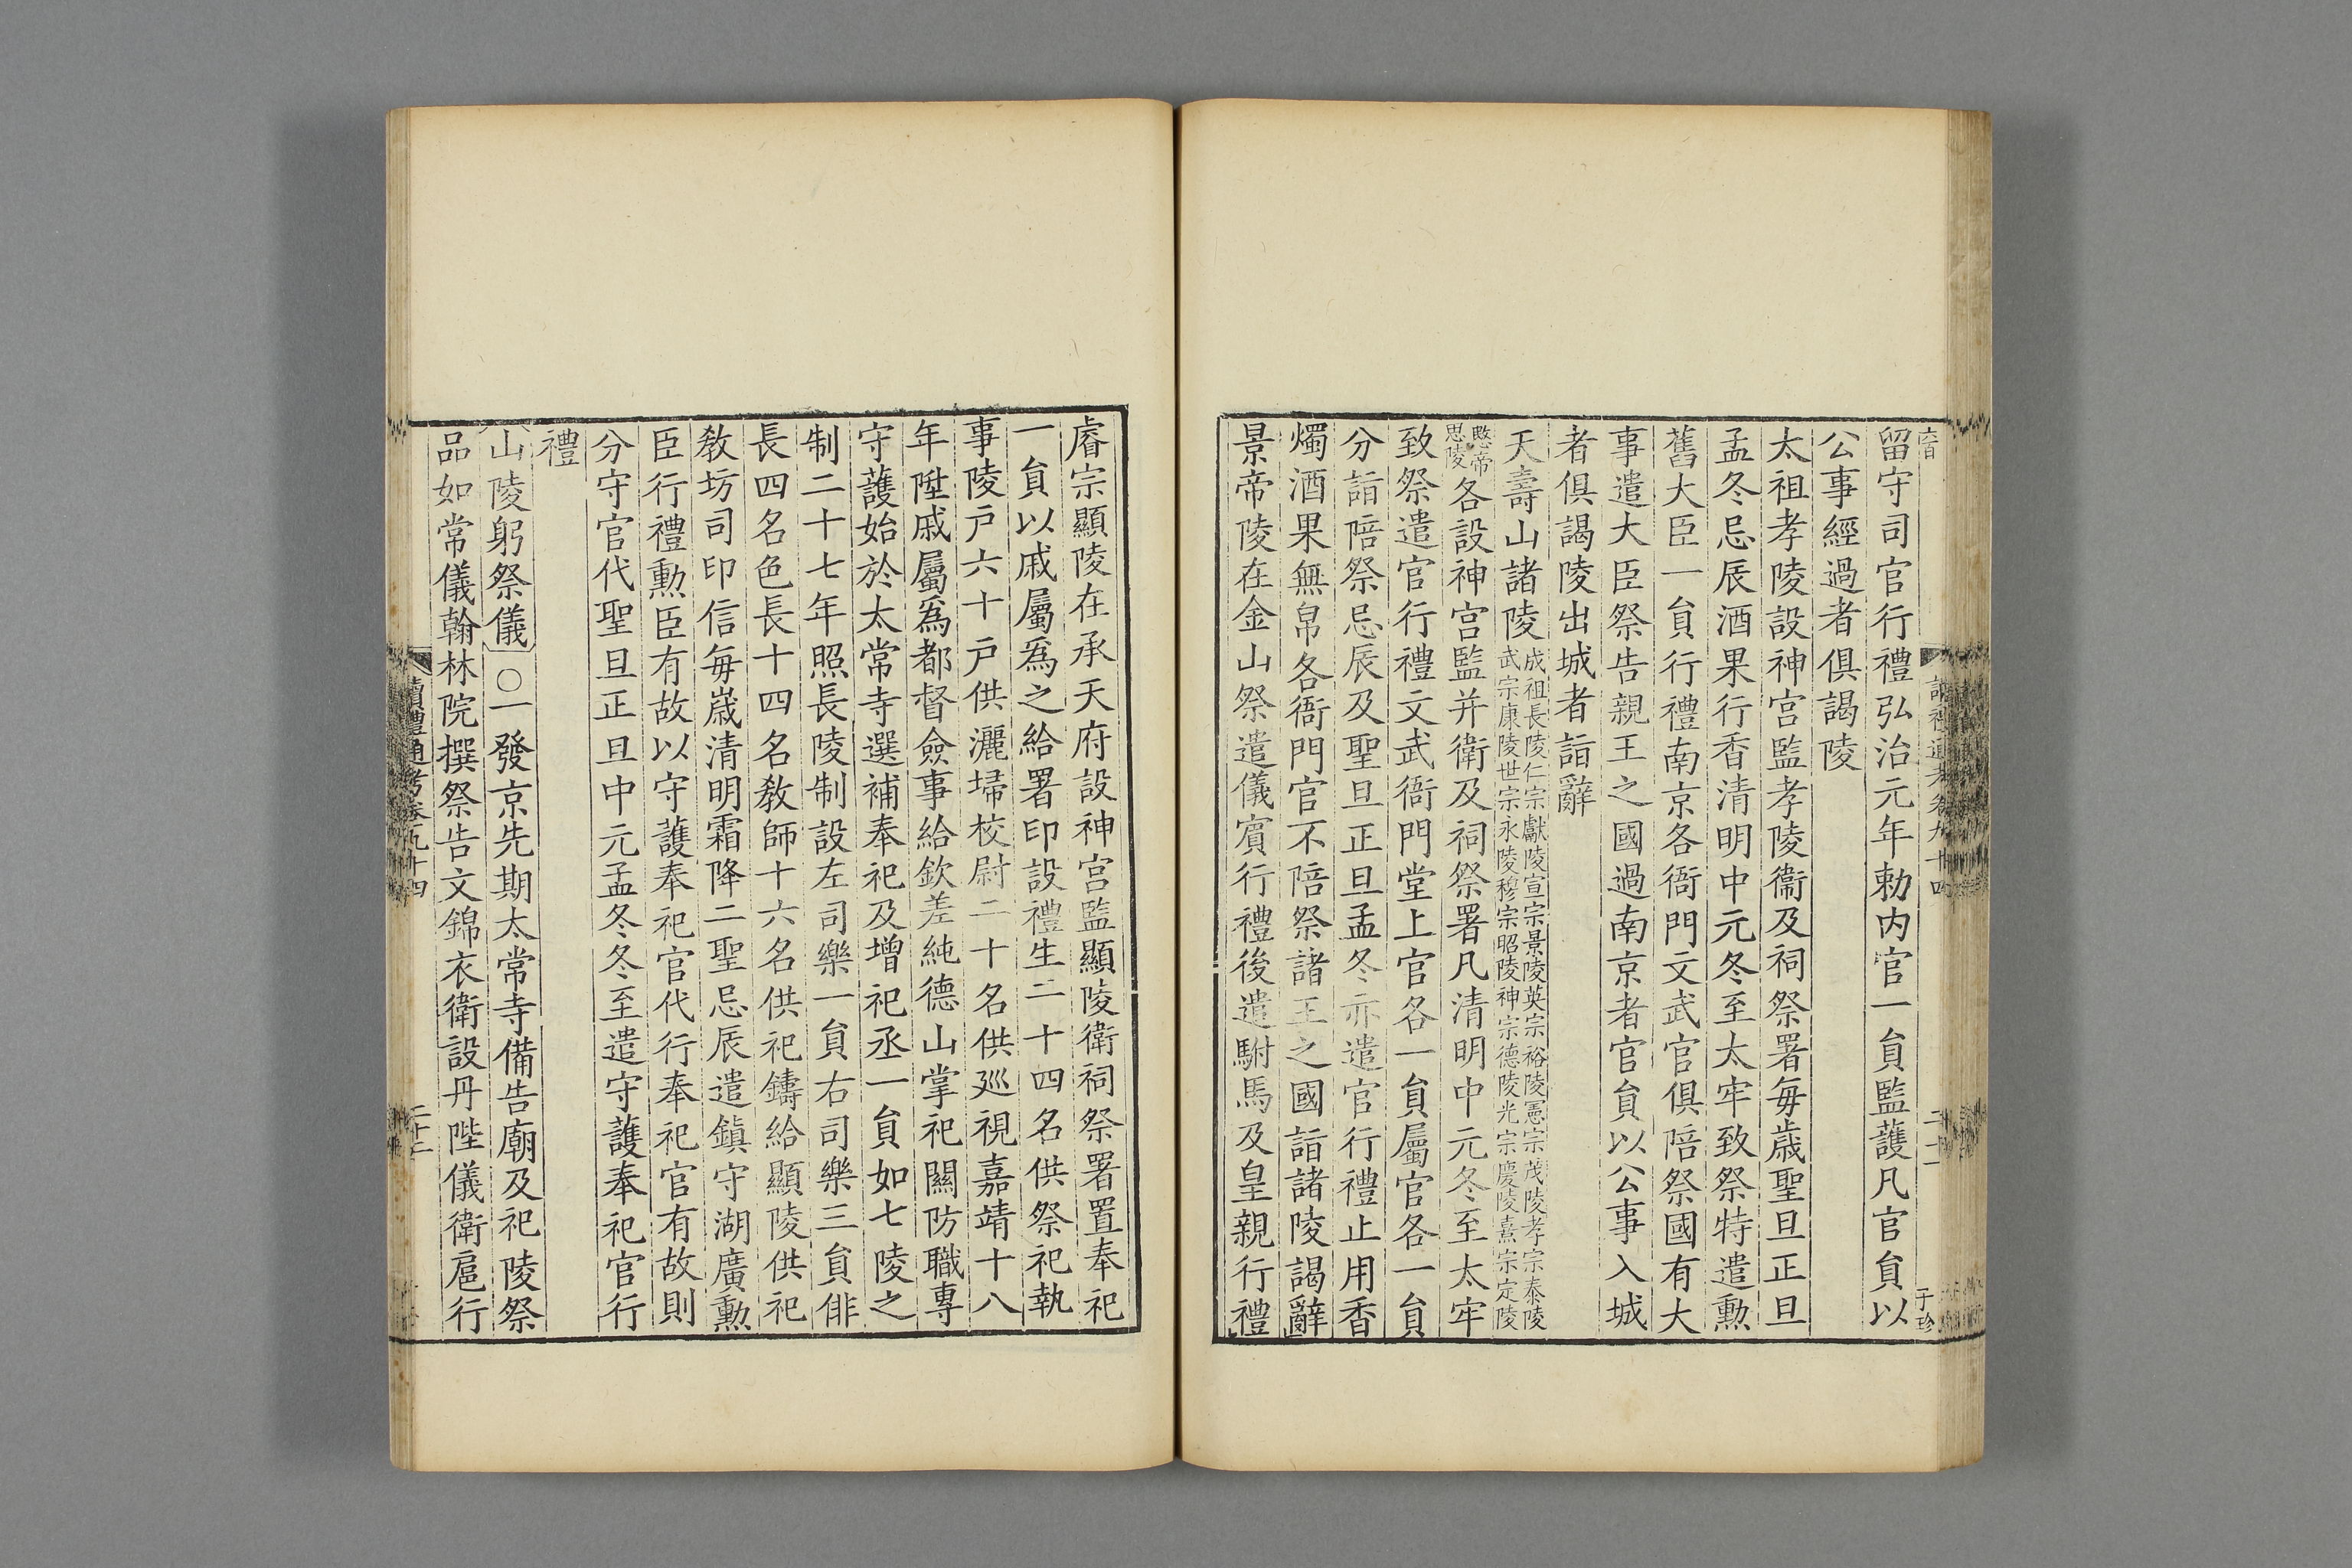 留守司官行禮弘治元年勅内官一員監護凡官員以
公事經過者俱謁陵
太祖孝陵設神宫監孝陵衞及祠祭署每歲聖旦正旦
孟冬忌辰酒果行香清明中元冬至太牢致祭特遣勲
舊大臣一員行禮南京各衙門文武官俱陪祭國有大
事遣大臣祭告親王之國過南京者官員以公事入城
者俱謁陵出城者詣辭
天壽山諸陵成祖長陵仁宗獻陵宣宗景陵英宗裕陵憲宗茂陵孝宗泰陵武宗康陵世宗永陵穆宗昭陵神宗德陵光宗慶陵熹宗定陵
愍帝思陵各設神宫監并衛及祠祭署凡清明中元冬至太牢
致祭遣官行禮文武衙門堂上官各一員屬官各一員
分詣陪祭忌辰及聖旦正旦孟冬亦遣官行禮止用香
燭酒果無帛各衙門官不陪祭諸王之國詣諸陵謁辭
景帝陵在金山祭遣儀賓行禮後遣駙馬及皇親行禮
睿宗顯陵在承天府設神宫監顯陵衛祠祭署置奉祀
一員以戚屬爲之給署印設禮生二十四名供祭祀執
事陵戸六十戸供灑埽校尉二十名供廵視嘉靖十八
年陞戚屬爲都督僉事給欽差純德山掌祀關防職專
守護始於太常寺選補奉祀及增祀丞一員如七陵之
制二十七年照長陵制設左司樂一員右司樂三員俳
長四名色長十四名教師十六名供祀鑄給顯陵供祀
教坊司印信每歲清明霜降二聖忌辰遣鎮守湖廣勲
臣行禮勲臣有故以守護奉祀官代行奉祀官有故則
分守官代聖旦正旦中元孟冬冬至遣守護奉祀官行
禮
山陵躬祭儀○一發京先期太常寺備告廟及祀陵祭
品如常儀翰林院撰祭告文錦衣衛設丹陛儀衛扈行
讀禮通考卷九十四
二十二